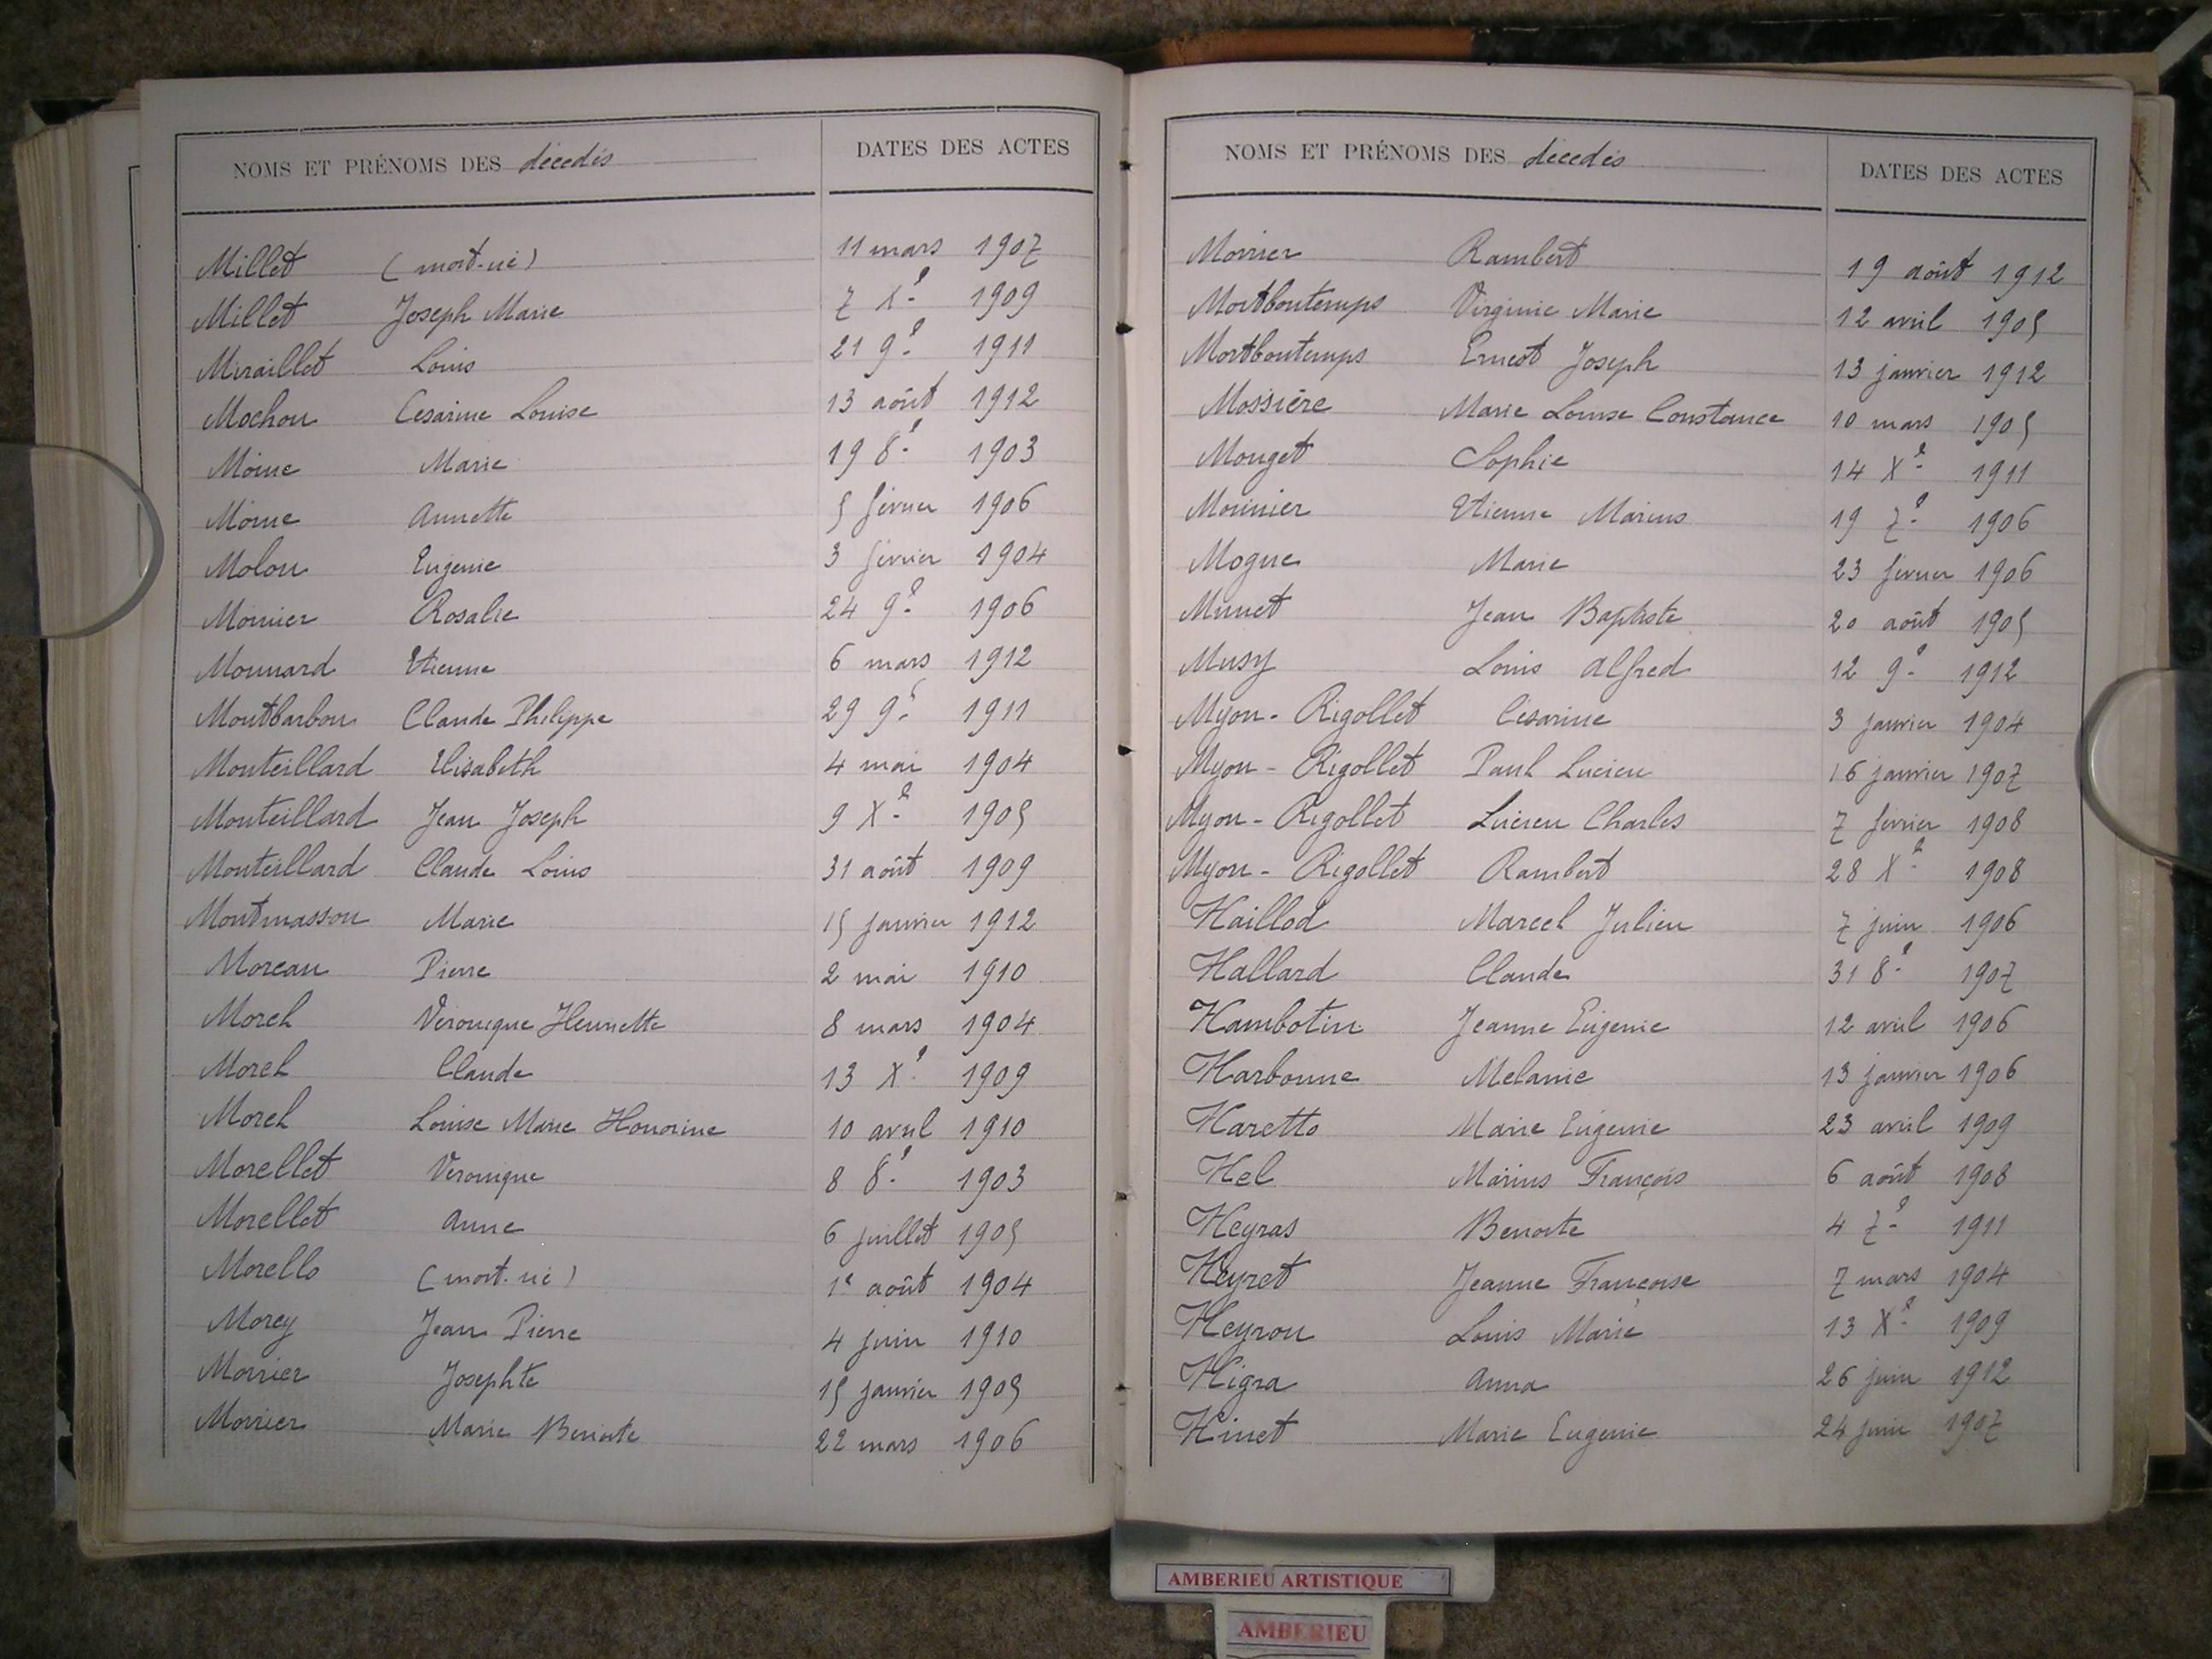 NOMS ET PRÉNOMS DES décédés DATES DES ACTES
Millet (mort-né) 11 mars 1907
Millet Joseph Marie 7 Xe 1909
Miraillet Louis 21 9e 1911
Mochon Cesarine Louise 13 août 1912
Moine Marie 19 8e 1903
Moine Annette 5 février 1906
Molon Eugenie 3 février 1904
Monnier Rosalie 24 9e 1906
Monnard Etienne 6 mars 1912
Montbarbon Claude Philippe 29 9e 1911
Monteillard Elisabeth 4 mai 1904
Monteillard Jean Joseph 9 Xe 1905
Monteillard Claude Louis 31 août 1909
Montmasson Marie 15 janvier 1912
Moreau Pierre 2 mai 1910
Morel Veronique Henriette 8 mars 1904
Morel Claude 13 Xe 1909
Morel Louise Marie Honorine 10 avril 1910
Morellet Veronique 8 8e 1903
Morellet Anne 6 juillet 1905
Morello (mort-né) 1e août 1904
Morey Jean Pierre 4 juin 1910
Morrier Josephte 15 janvier 1905
Morrier Marie Benoite 22 mars 1906
NOMS ET PRÉNOMS DES décédés DATES DES ACTES
Morrier Rambert 19 août 1912
Mortbontemps Virginie Marie 12 avril 1905
Mortbontemps Ernest Joseph 13 janvier 1912
Mossière Marie Louise Constance 10 mars 1905
Mouget Sophie 14 Xe 1911
Mounier Etienne Marius 19 7e 1906
Mogue Marie 23 février 1906
Munet Jean Baptiste 20 août 1905
Musy Louis Alfred 12 9e 1912
Myon-Rigollet Césarine 3 janvier 1904
Myon-Rigollet Paul Lucien 16 janvier 1907
Myon-Rigollet Lucien Charles 7 février 1908
Myon-Rigollet Rambert 28 Xe 1908
Naillod Marcel Julien 7 juin 1906
Nallard Claude 31 8e 1907
Nambotin Jeanne Eugenie 12 avril 1906
Narbonne Melanie 13 janvier 1906
Naretto Marie Eugenie 23 avril 1909
Nel Marius François 6 août 1908
Neyras Benoite 4 7e 1911
Neyret Jeanne Françoise 7 mars 1904
Neyrou Louis Marie 13 Xe 1909
Nigra Anna 26 juin 1912
Ninet Marie Eugenie 24 juin 1907
AMBERIEU ARTISTIQUE
AMBERIEU